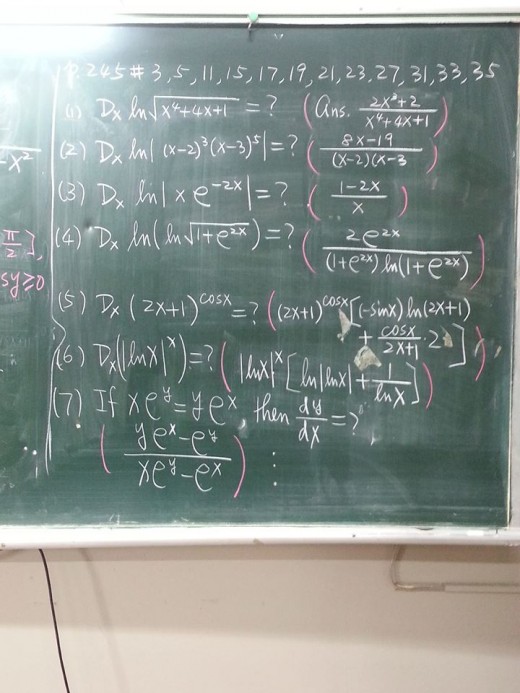 P.245 # 3, 5, 11, 15, 17, 19, 21, 23, 27, 31, 33, 35
(1) Dₓ ln√(x⁴+4x+1) = ? (Ans. (2x³+2)/(x⁴+4x+1))
(2) Dₓ ln|(x-2)³(x-3)⁵| = ? ((8x-19)/((x-2)(x-3))
(3) Dₓ ln|x e⁻²ˣ| = ? ((1-2x)/x)
(4) Dₓ ln(ln√(1+e²ˣ)) = ? (2e²ˣ/((1+e²ˣ)ln(1+e²ˣ)))
(5) Dₓ (2x+1)^cosx = ? ((2x+1)^cosx [(-sinx) ln(2x+1)
+ cosx/(2x+1) · 2])
(6) Dₓ(|lnx|ˣ) = ? (|lnx|ˣ [ln|lnx| + 1/lnx])
(7) If xeʸ = yeˣ, then dy/dx = ?
((yeˣ-eʸ)/(xeʸ-eˣ)) ⋮
-x²
π/2],
sy≥0